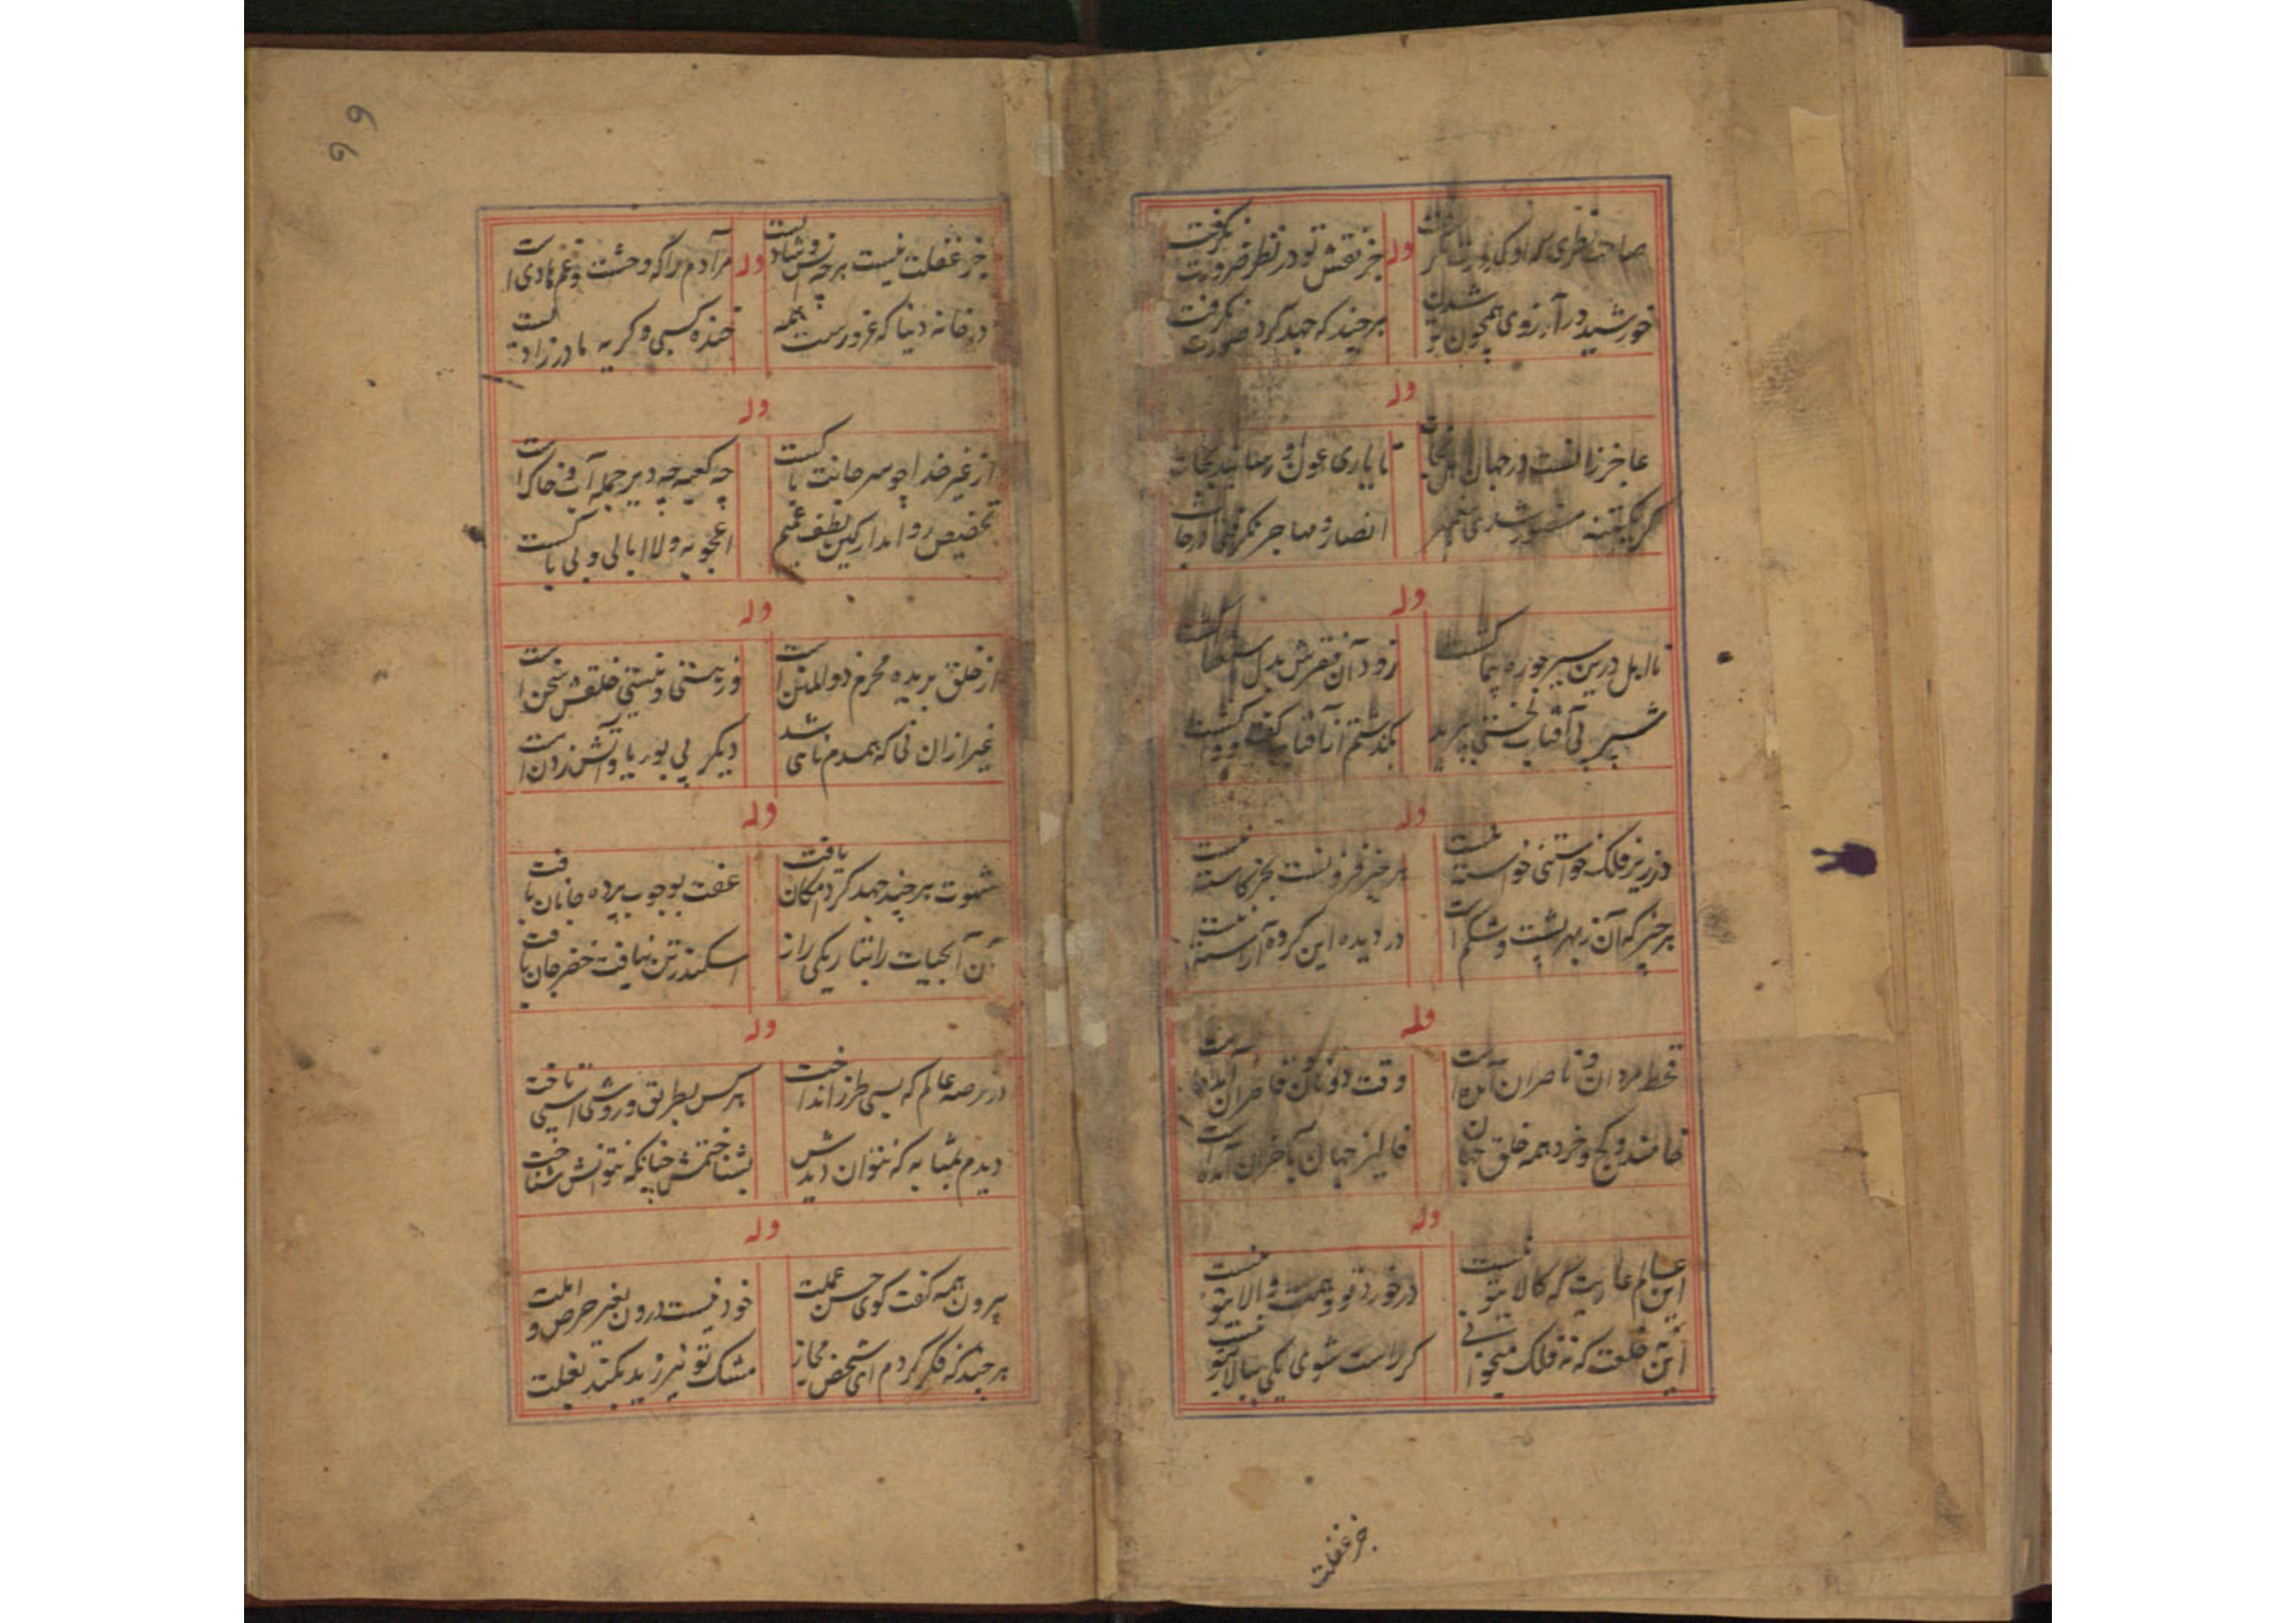 صاحب نظری که او
وله
جز نقش تو در نظر ضرورت نگرفت
خورشید در آرزوی همچون تو شدن
هرچند که جهد کرد صورت نگرفت
وله
عاجز در جهان
تا یاری عون او رسانید نجات
گر یکتنه منصور شدی
انصار و مهاجر نگرفتی درجات
وله
نااهل درین سیر چو ره پیما گشت
زود آن سفرش بدل
شپر پی آفتاب لختی بپرید
بگذشتم از آفتاب گفت و واگشت
وله
در زیر فلک خواستنی خواسته نیست
هر چیز فزونست بجز کاسته نیست
هر چیز که آن ز بهر پشت و شکم است
در دیده این گروه آراسته نیست
وله
قحط مردان و ناصران آمده است
وقت دونان و قاصران آمده است
خامند و کج و خرد همه خلق جهان
فالیز جهان بآخران آمده است
وله
این عالم عاریت که کالا تو نیست
در خورد تو و همت والا تو نیست
این خلعت که نه فلک میخوانی
گر راست شوی یکی ببالا تو نیست
جز غفلت
٩٩
جز غفلت نیست هرچه زو شادیست
وله
مر آدم را که وحشت و غم هادی است
در خانه دنیا که غرورست همه
خنده کسبی و گریه مادرزادیست
وله
از غیر خدا چو سر جانت پاکست
چه کعبه چه دیر جمله آب و خاک است
تخصیص روا مدار کین لطف عمیم
اعجوبه و لاابالی و بی باکست
وله
از خلق بریده محرم ذوالمنن است
وز هستی و نیستی خلقش سخن است
غیر از آن نی که همدم نائی شد
دیگر نی بوریا و آتش زدن است
وله
شهوت هرچند جهد کرد امکان یافت
عفت بوجوب پرده جانان یافت
آن آبحیات را بتاریکی راز
اسکندر تن نیافت خضر جان یافت
وله
در عرصه عالم که بسی طرز انداخت
هرکس بطریق و روشی اسبی تاخت
دیدم بمثابه که نتوان دیدش
بشناختمش چنانکه نتوانش شناخت
وله
بیرون همه گفت گوی حسن عملت
خود نیست درون بغیر حرص و املت
هرچند که فکر کردم ای شخص مجاز
مشک تو نیرزید بگند بغلت